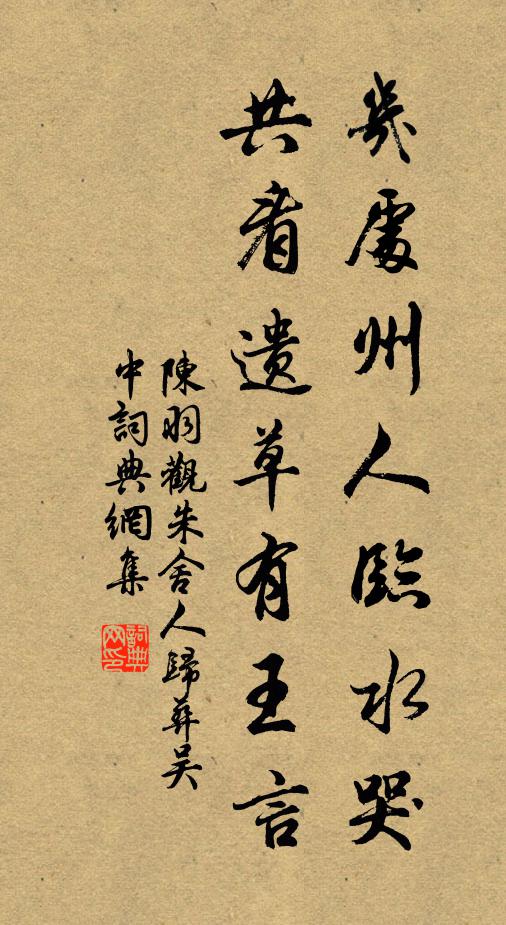 幾處州人臨水哭
共看遺草有王言
陳羽觀朱舍人歸葬吳
中詞典網集
詞典網印